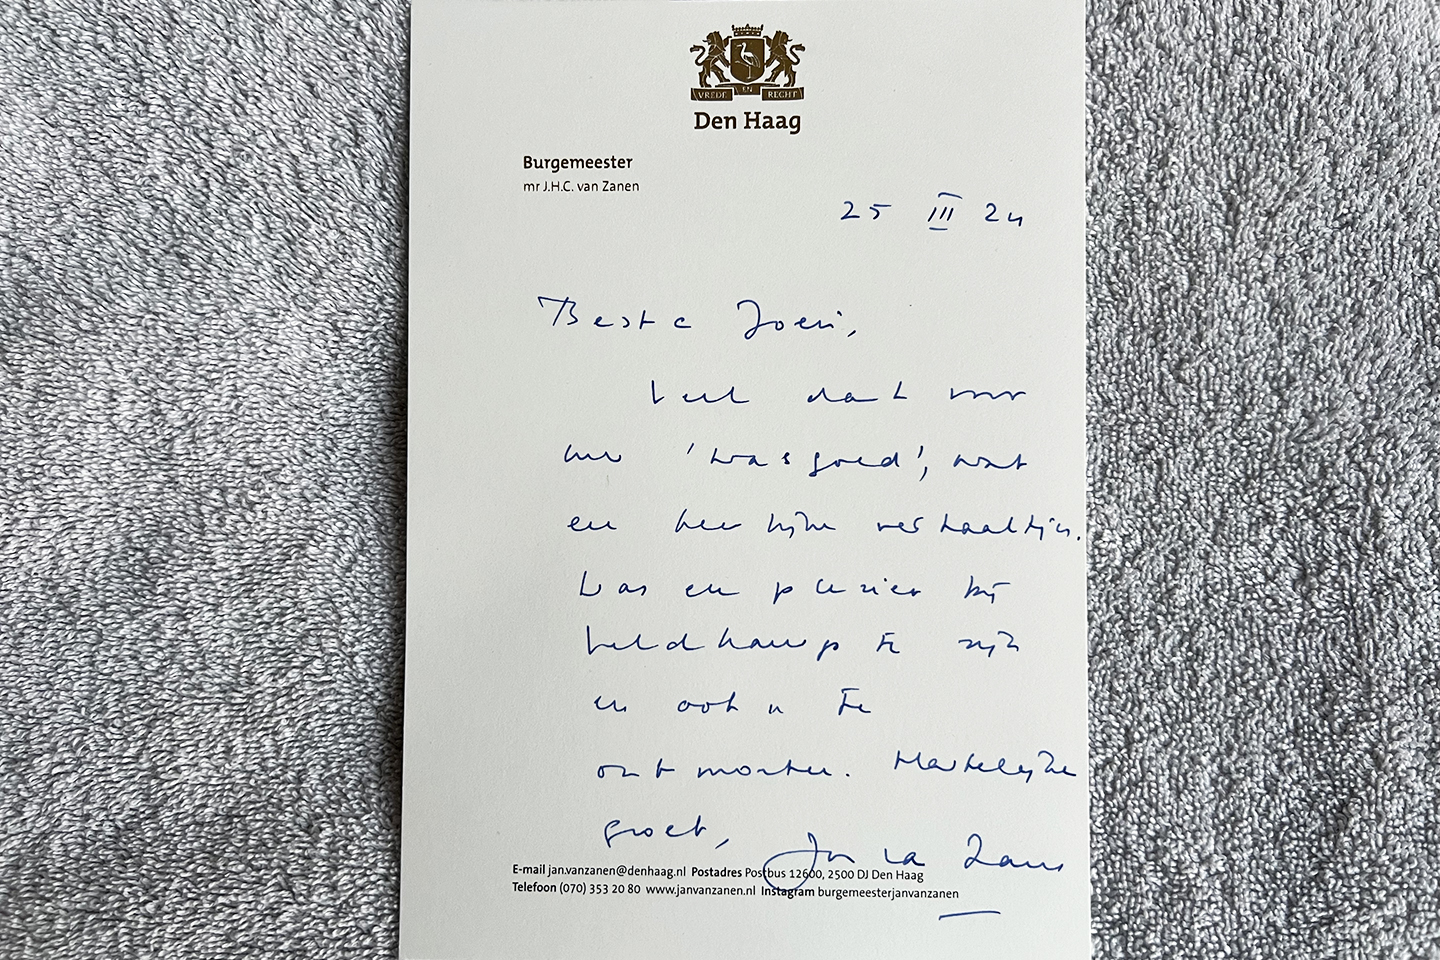 VREDE EN RECHT
Den Haag
Burgemeester
mr J.H.C. van Zanen
25 III 24
Beste Joeri,
Veel dank voor
uw 'wasgoed', wat
een heerlijke verhaaltjes.
Was een plezier bij
Veldkamp te zijn
en ook u te
ontmoeten. Hartelijke
groet, Jan va Zanen
E-mail jan.vanzanen@denhaag.nl Postadres Postbus 12600, 2500 DJ Den Haag
Telefoon (070) 353 20 80 www.janvanzanen.nl Instagram burgemeesterjanvanzanen